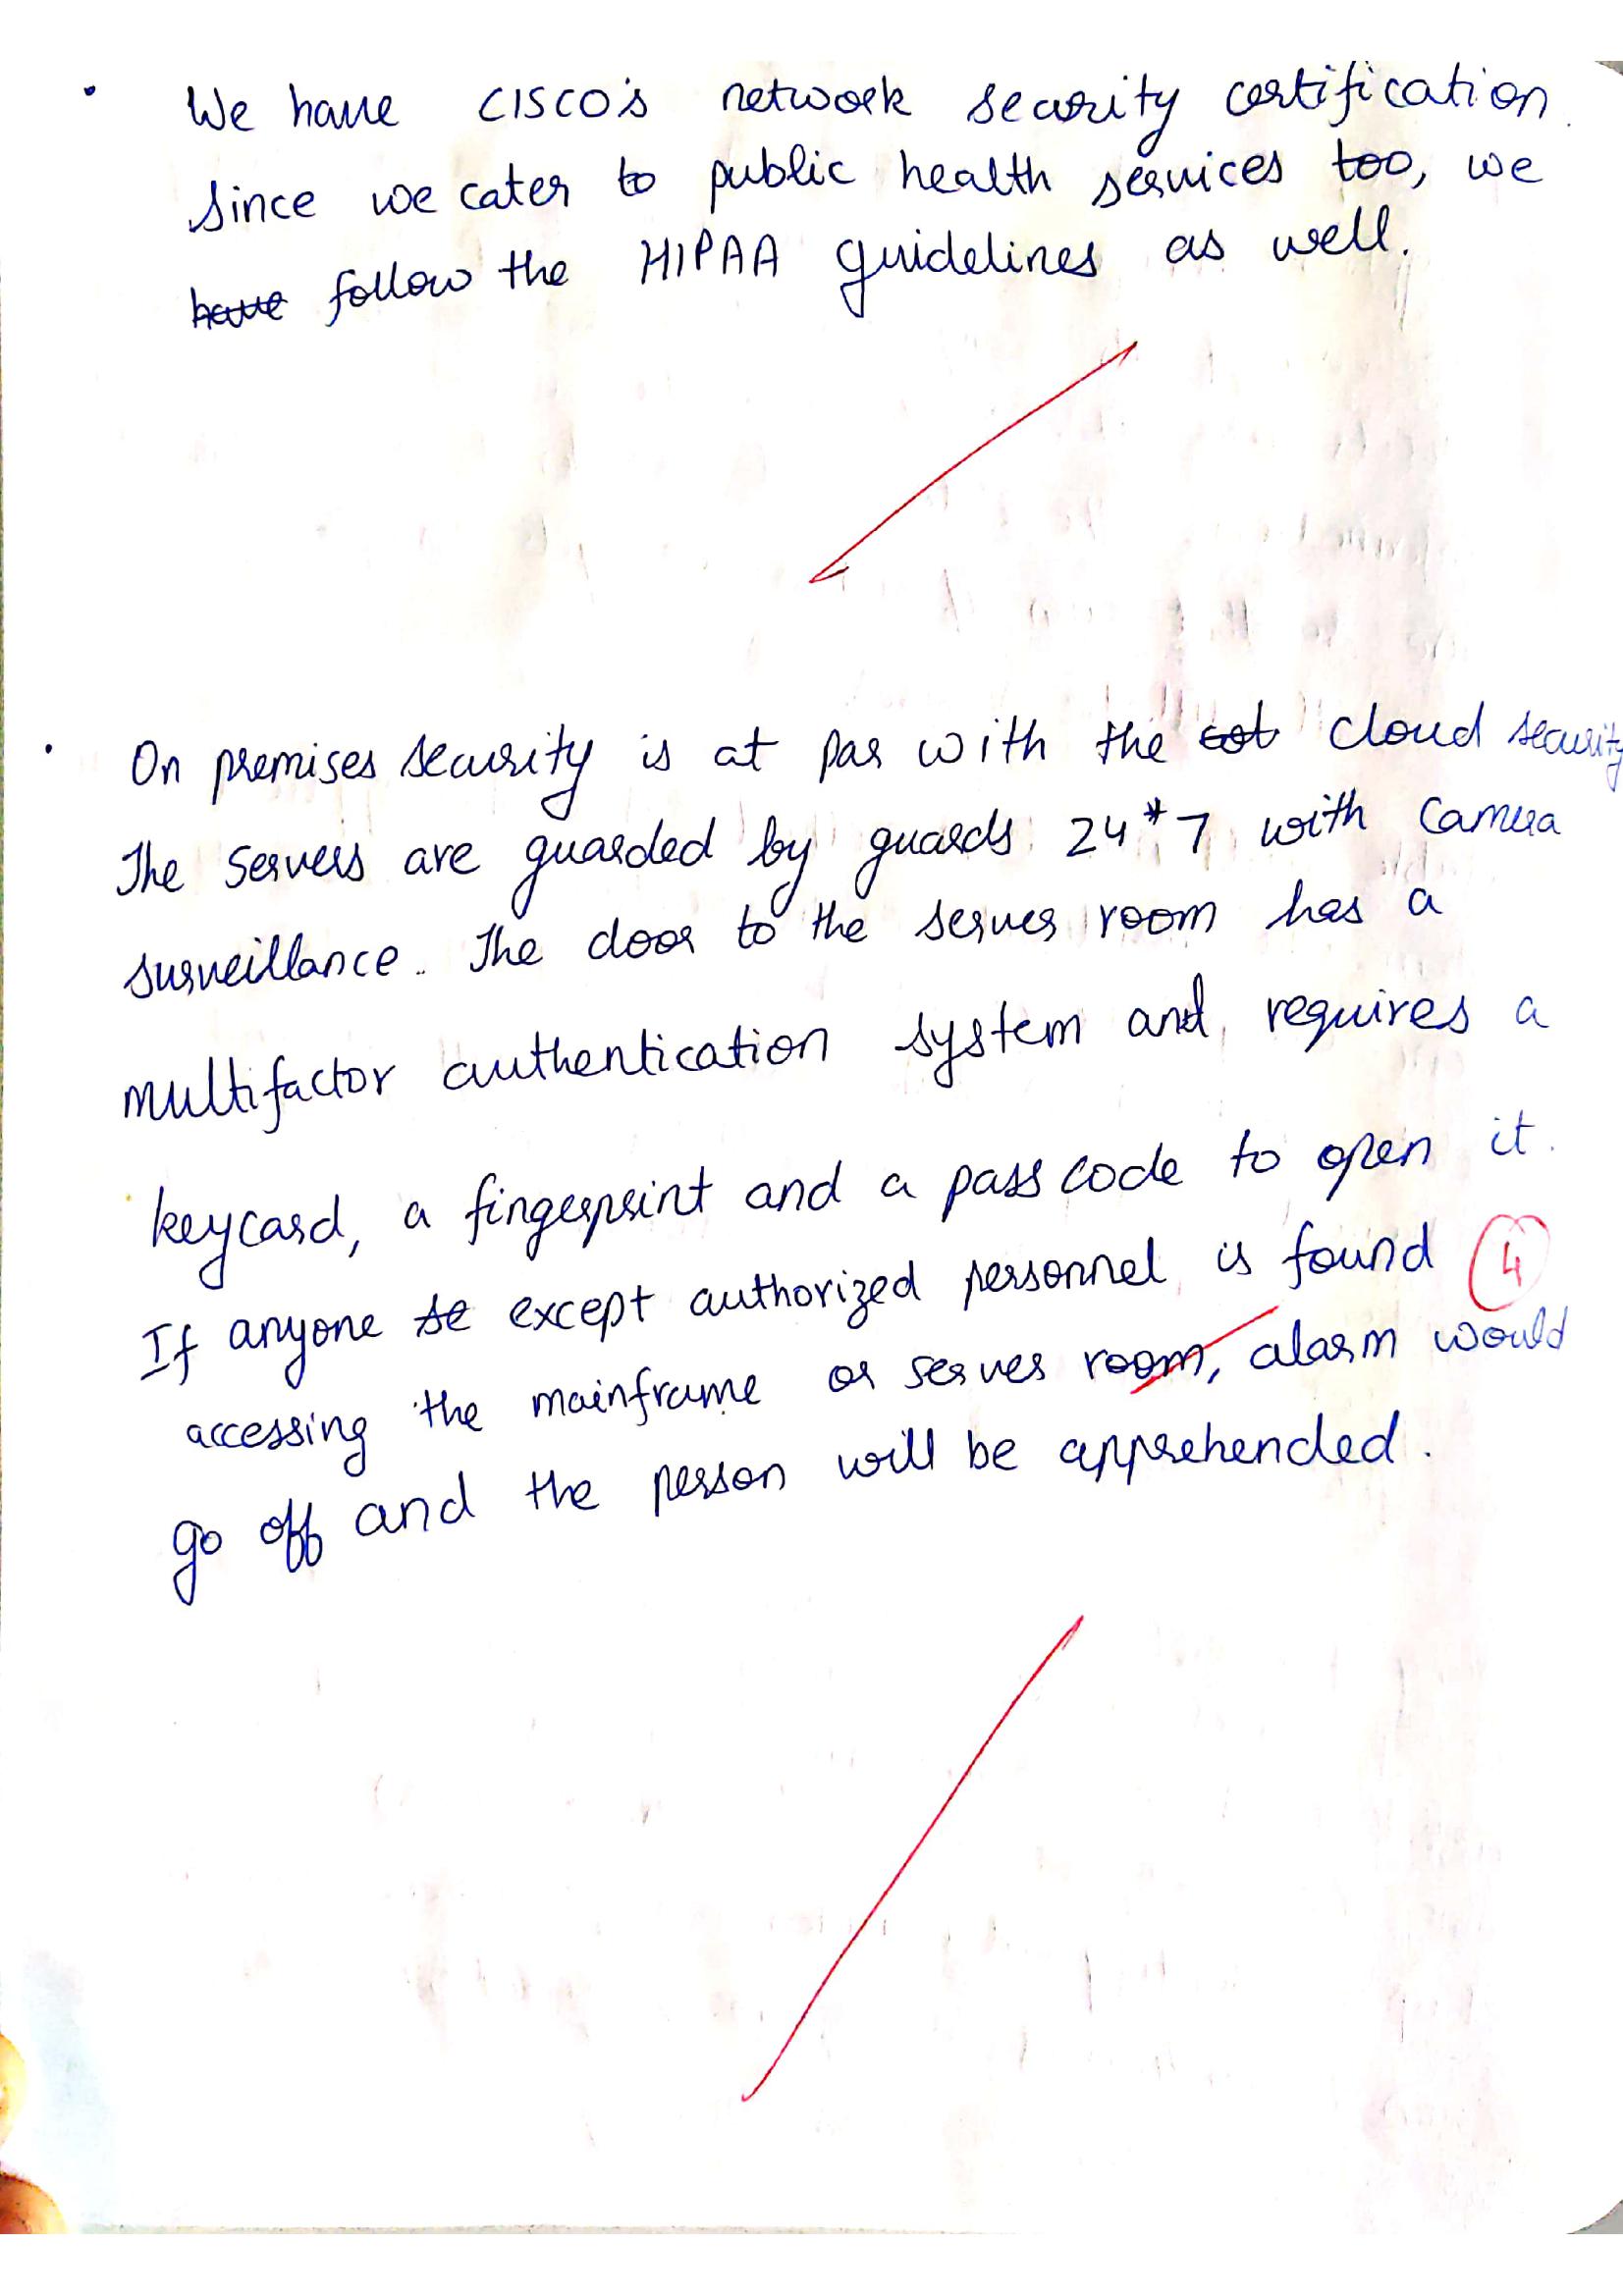 • We have CISCO's network security certification.
Since we cater to public health services too, we
have follow the HIPAA guidelines as well.
• On premises security is at par with the cot cloud security
The servers are guarded by guards 24*7 with camera
surveillance. The door to the server room has a
multifactor authentication system and requires a
keycard, a fingerprint and a pass code to open it.
If anyone se except authorized personnel is found
4
accessing the mainframe or server room, alarm would
go off and the person will be apprehended.